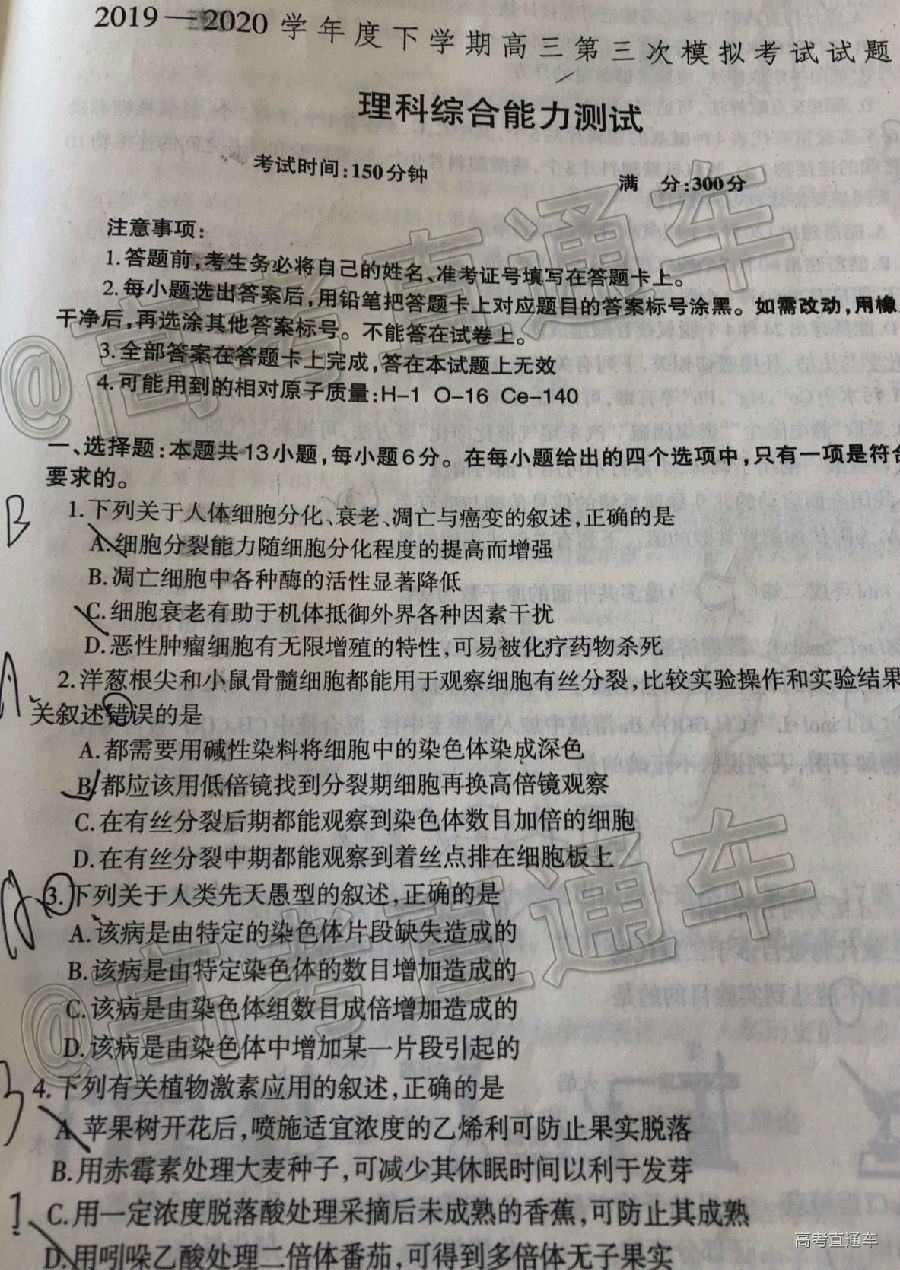 2019—2020学年度下学期高三第三次模拟考试试题
理科综合能力测试
考试时间:150分钟 满 分:300分
注意事项:
1.答题前,考生务必将自己的姓名、准考证号填写在答题卡上。
2.每小题选出答案后,用铅笔把答题卡上对应题目的答案标号涂黑。如需改动,用橡
干净后,再选涂其他答案标号。不能答在试卷上。
3.全部答案在答题卡上完成,答在本试题上无效
4.可能用到的相对原子质量:H-1 O-16 Ce-140
一、选择题:本题共13小题,每小题6分。在每小题给出的四个选项中,只有一项是符合
要求的。
B
1.下列关于人体细胞分化、衰老、凋亡与癌变的叙述,正确的是
A.细胞分裂能力随细胞分化程度的提高而增强
B.凋亡细胞中各种酶的活性显著降低
C.细胞衰老有助于机体抵御外界各种因素干扰
D.恶性肿瘤细胞有无限增殖的特性,可易被化疗药物杀死
A
2.洋葱根尖和小鼠骨髓细胞都能用于观察细胞有丝分裂,比较实验操作和实验结果
关叙述错误的是
A.都需要用碱性染料将细胞中的染色体染成深色
B.都应该用低倍镜找到分裂期细胞再换高倍镜观察
C.在有丝分裂后期都能观察到染色体数目加倍的细胞
D.在有丝分裂中期都能观察到着丝点排在细胞板上
3.下列关于人类先天愚型的叙述,正确的是
A.该病是由特定的染色体片段缺失造成的
B.该病是由特定染色体的数目增加造成的
C.该病是由染色体组数目成倍增加造成的
D.该病是由染色体中增加某一片段引起的
4.下列有关植物激素应用的叙述,正确的是
A.苹果树开花后,喷施适宜浓度的乙烯利可防止果实脱落
B.用赤霉素处理大麦种子,可减少其休眠时间以利于发芽
C.用一定浓度脱落酸处理采摘后未成熟的香蕉,可防止其成熟
D.用吲哚乙酸处理二倍体番茄,可得到多倍体无子果实
@高考直通车
@高考直通车
高考直通车